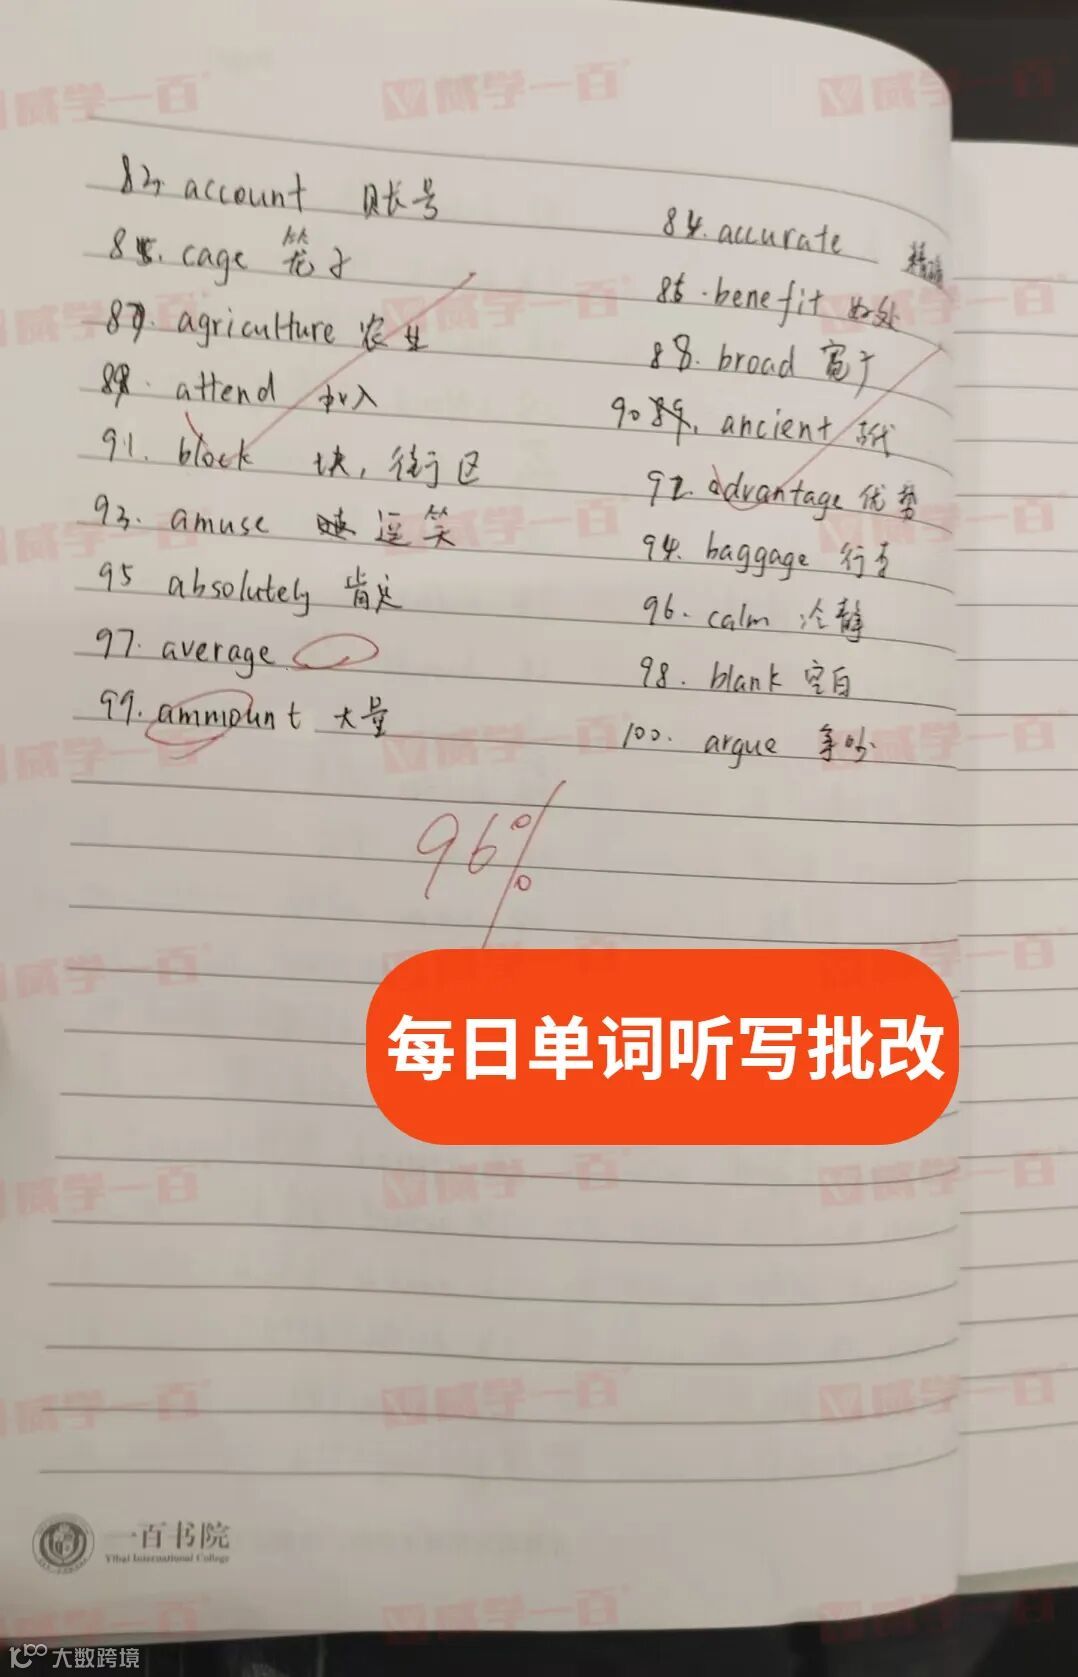 83. account 账号
84. accurate 精确
85. cage 笼子
86. benefit 好处
87. agriculture 农业
88. broad 宽广
89. attend 加入
90. 89. ancient 古代
91. block 块，街区
92. advantage 优势
93. amuse 逗笑
94. baggage 行李
95 absolutely 肯定
96. calm 冷静
97. average
98. blank 空白
99. ammount 大量
100. argue 争吵
96%
每日单词听写批改
一百书院
Yibai International College
大数跨境
威学一百